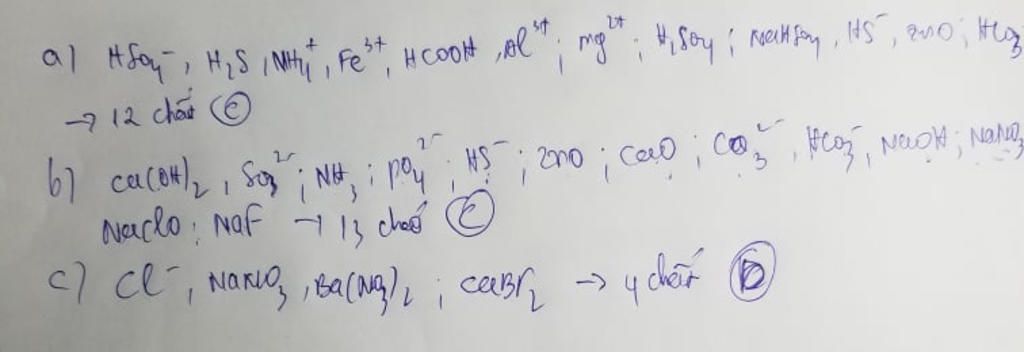 a) HSO₄⁻, H₂S, NH₄⁺, Fe³⁺, HCOOH, Al³⁺; Mg²⁺; H₂SO₄; NaHSO₄, HS⁻, ZnO; HCO₃⁻
→ 12 chất (C)
b) Ca(OH)₂, SO₃²⁻; NH₃; PO₄²⁻; HS⁻; ZnO; CaO; CO₃²⁻, HCO₃⁻, NaOH; NaNO₃
NaClO; NaF → 13 chất (C)
c) Cl⁻, NaNO₃, Ba(NO₃)₂; CaBr₂ → 4 chất (D)